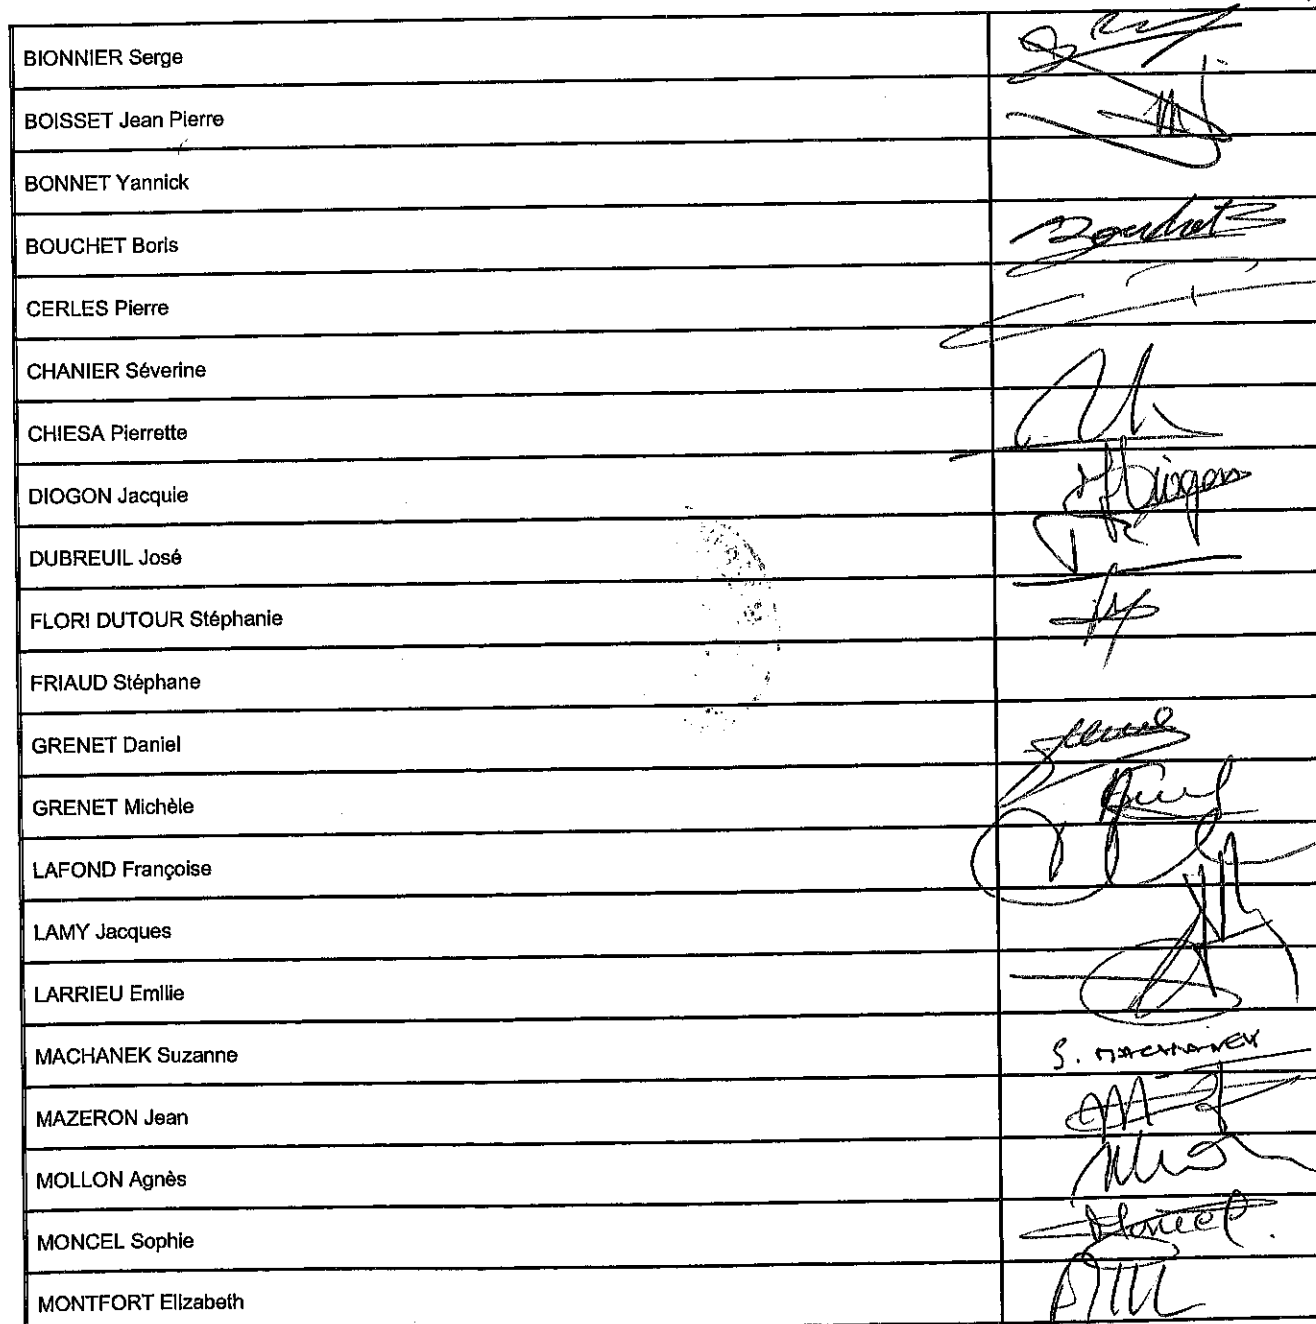 BIONNIER Serge
BOISSET Jean Pierre
BONNET Yannick
BOUCHET Boris
Bouchet B
CERLES Pierre
CHANIER Séverine
CHIESA Pierrette
DIOGON Jacquie
Diogon
DUBREUIL José
FLORI DUTOUR Stéphanie
FRIAUD Stéphane
GRENET Daniel
GRENET Michèle
LAFOND Françoise
LAMY Jacques
LARRIEU Emilie
MACHANEK Suzanne
S. MACHANEK
MAZERON Jean
MOLLON Agnès
MONCEL Sophie
Moncel.
MONTFORT Elizabeth